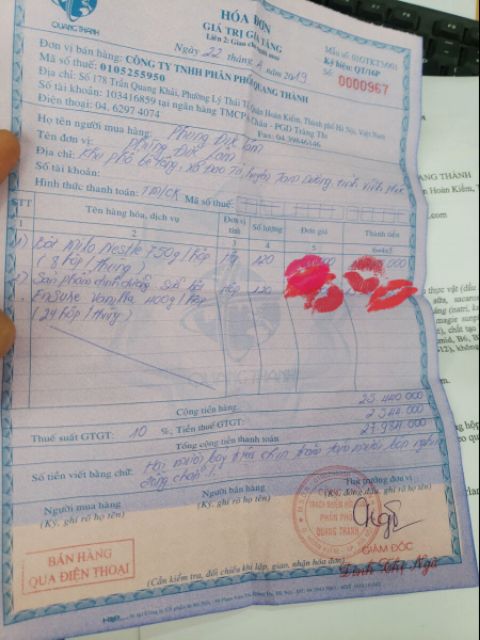 QUANG THANH
HÓA ĐƠN
GIÁ TRỊ GIA TĂNG
Liên 2: Giao
Ngày 22 tháng 4 năm 2019
Mẫu số: 01GTKT3/001
Ký hiệu: QT/16P
Số: 0000967
Đơn vị bán hàng: CÔNG TY TNHH PHÂN PHỐI QUANG THÀNH
Mã số thuế: 0105255950
Địa chỉ: Số 178 Trần Quang Khải, Phường Lý Thái Tổ, Quận Hoàn Kiếm, Thành phố Hà Nội, Việt Nam
Số tài khoản: 103416859 tại ngân hàng TMCP Á Châu - PGD Tràng Thi
Điện thoại: 04. 6297 4074 Fax: 04.39846346
Họ tên người mua hàng: Phùng Đức Lâm
Tên đơn vị: Phùng Đức Lâm
Địa chỉ: Khu phố bê tông, xã Đạo Tú, huyện Tam Dương, tỉnh Vĩnh Phúc
Số tài khoản:
Hình thức thanh toán: TM/CK Mã số thuế:
STT Tên hàng hóa, dịch vụ Đơn vị tính Số lượng Đơn giá Thành tiền
2 3 4 5 6=4x5
1) Bột Milo Nestle 750g/Hộp Hộp 120
(8 hộp/thùng)
2) Sản phẩm dinh dưỡng sữa bột Hộp 120
Ensure Vanilla 400g/Hộp
(24 hộp/thùng)
QUANG THANH
Cộng tiền hàng 25 440 000
Thuế suất GTGT: 10 %, Tiền thuế GTGT: 2 544 000
Tổng cộng tiền thanh toán 27 984 000
Số tiền viết bằng chữ: Hai mươi bảy triệu chín trăm tám mươi bốn nghìn
đồng chẵn !
Người mua hàng Người bán hàng Thủ trưởng đơn vị
(Ký, ghi rõ họ tên) (Ký, ghi rõ họ tên) (Ký, đóng dấu, ghi rõ họ tên)
TRÁCH NHIỆM HỮU HẠN
PHÂN PHỐI
QUANG THÀNH
BÁN HÀNG
QUA ĐIỆN THOẠI
GIÁM ĐỐC
Đinh Thị Ngà
(Cần kiểm tra, đối chiếu khi lập, giao, nhận hóa đơn)
ANG THÀNH
n Hoàn Kiếm,
.com